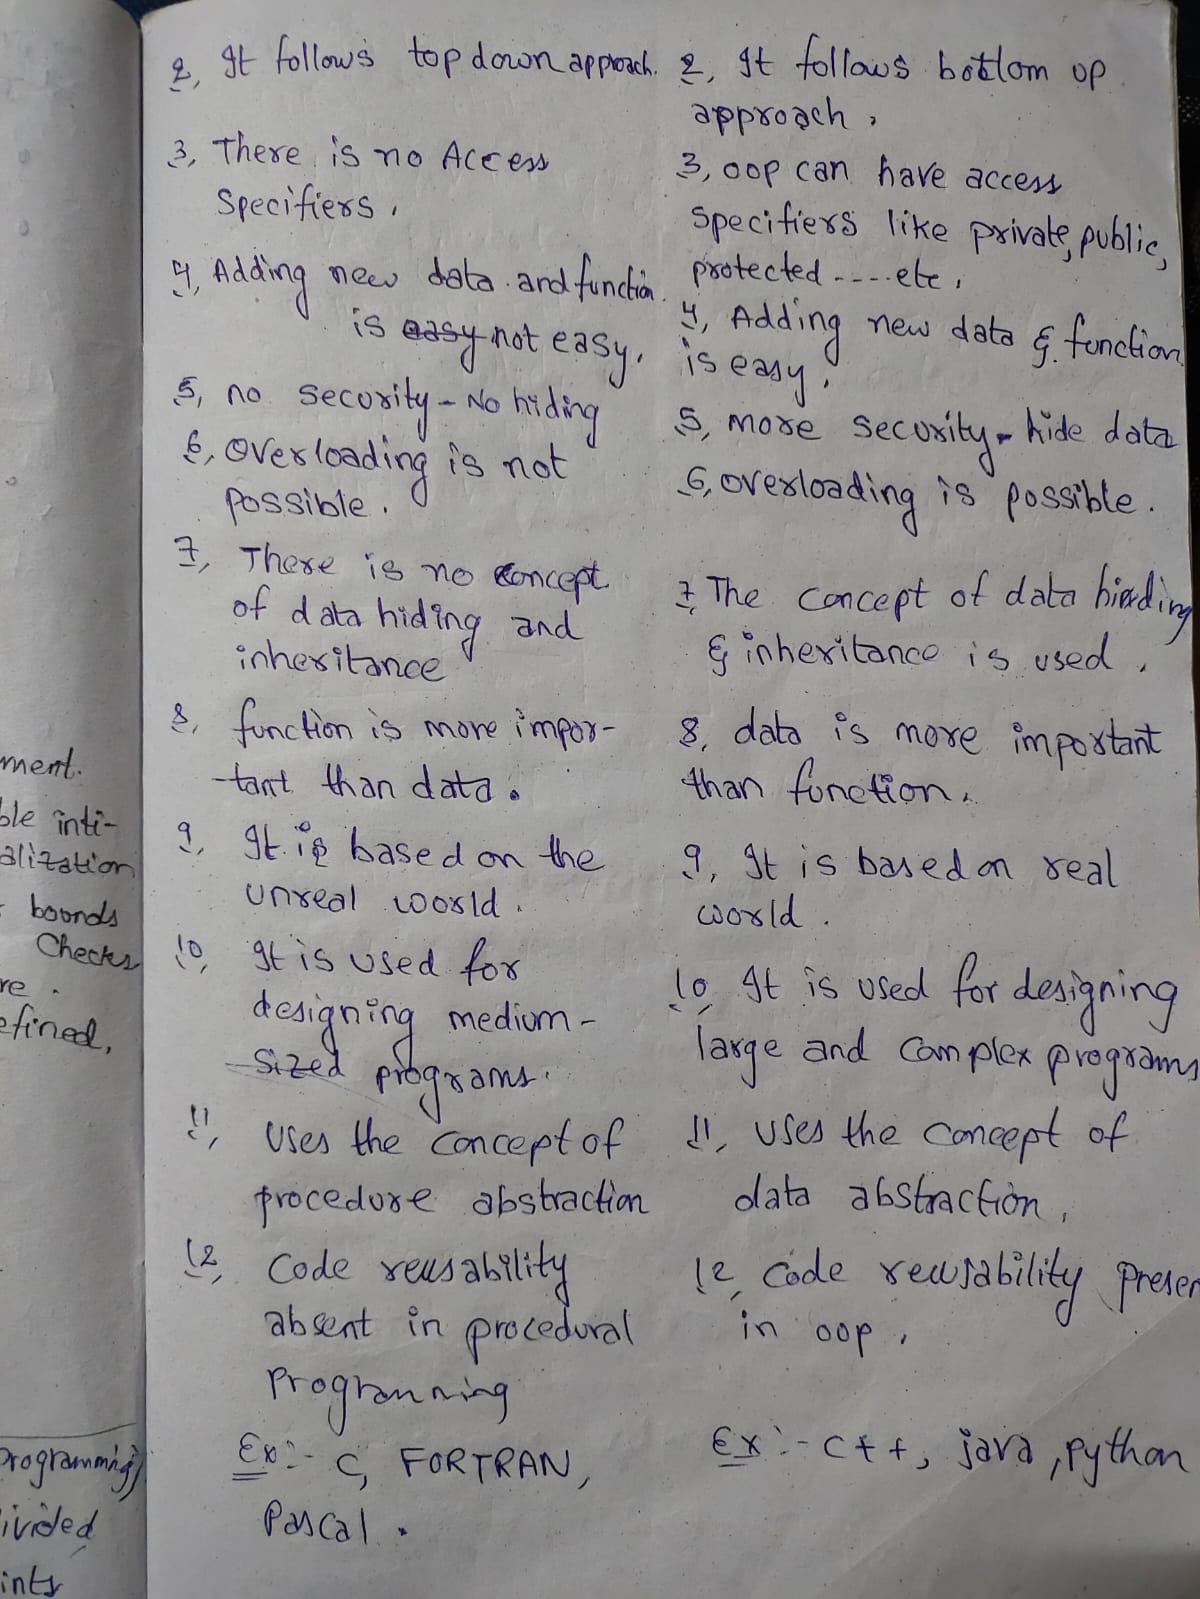 2, It follows top down approach.
3, There is no Access
Specifiers.
4, Adding new data and function
is easy not easy.
5, no security - No hiding
6, Overloading is not
possible.
7, There is no concept
of data hiding and
inheritance
8, function is more impor-
-tant than data.
9, It is based on the
unreal world.
10, It is used for
designing medium-
-sized programs.
11, Uses the concept of
procedure abstraction
12, Code reusability
absent in procedural
Programming
Ex:- C, FORTRAN,
Pascal.
2, It follows bottom up
approach.
3, oop can have access
specifiers like private, public,
protected ----etc.
4, Adding new data & function
is easy.
5, more security - hide data
6, overloading is possible.
7, The concept of data hiding
& inheritance is used.
8, data is more important
than function.
9, It is based on real
world.
10, It is used for designing
large and complex programs
11, uses the concept of
data abstraction.
12, Code reusability presen
in oop.
Ex:- C++, java, python
ment.
ble inti-
alization
bounds
Checks
re.
efined,
programming)
ivided
ints